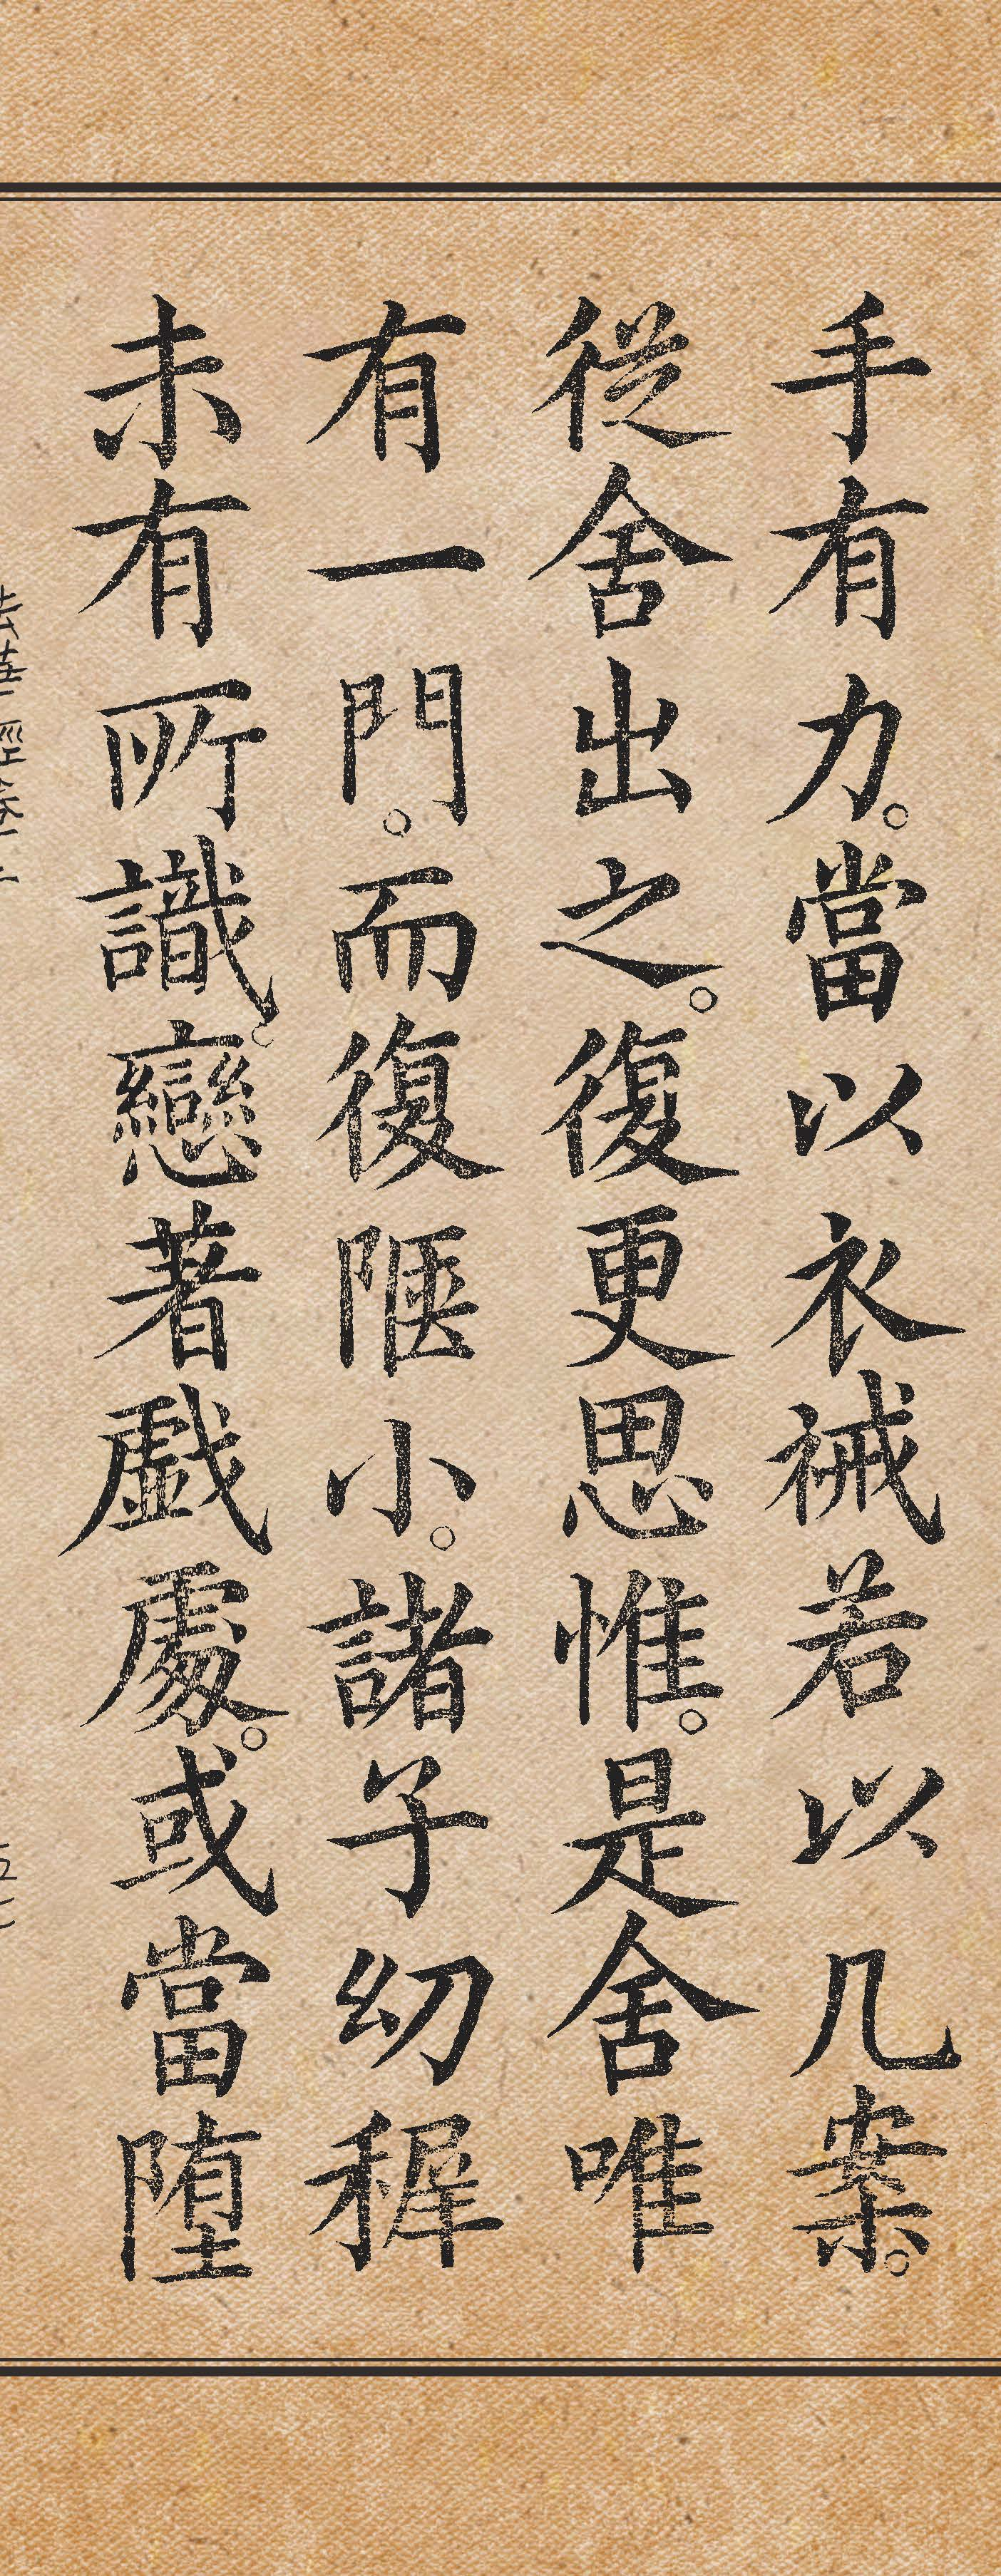 手有力。當以衣裓若以几案。
從舍出之。復更思惟。是舍唯
有一門。而復陿小。諸子幼稺
未有所識。戀著戲處。或當墮